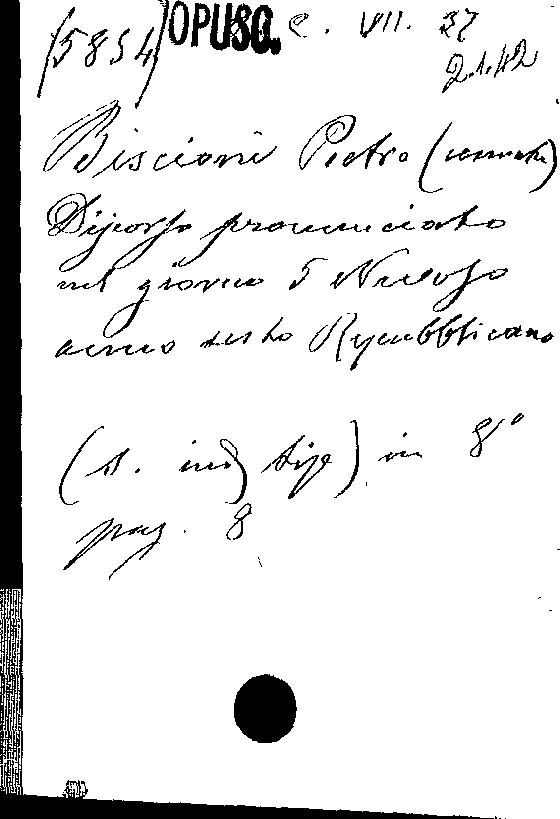 (5854) OPUSC. C. VII. 37
2.1.42
Biscioni Pietro (
Discorso pronunciato
nel giorno 5 Nevoso
anno sesto Repubblicano
(s. ind. tip) in 8°
pag. 8